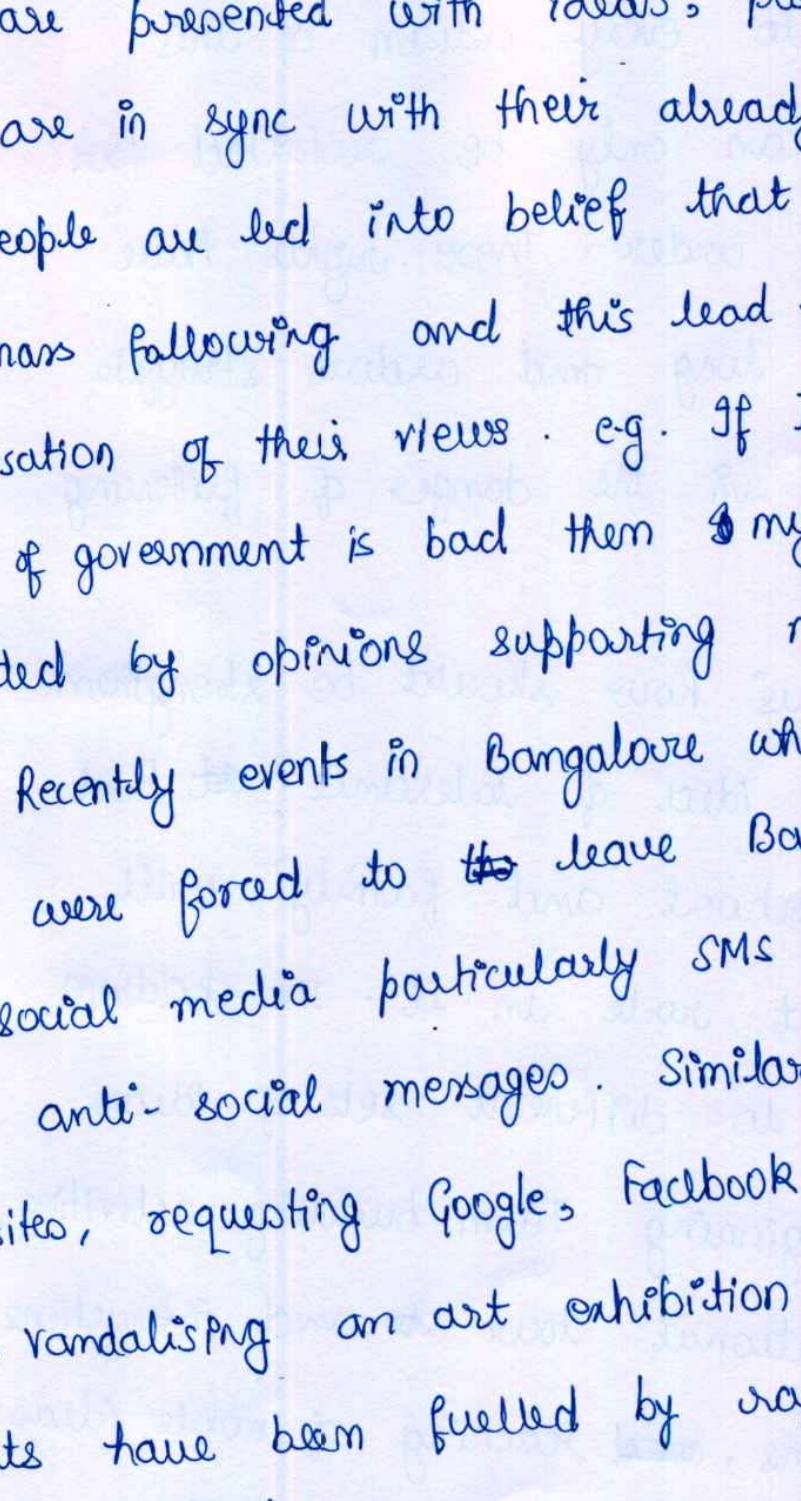 are presented with ideas,
are in sync with their alread
eople are led into belief that
mass following and this lead
sation of their views. e.g. If I
of government is bad then my
ted by opinions supporting
Recently events in Bangalore wh
were forced to leave Ba
social media particularly SMS
anti-social messages. Similar
ites, requesting Google, Facebook
vandalising an art exhibition
ts have been fuelled by ra